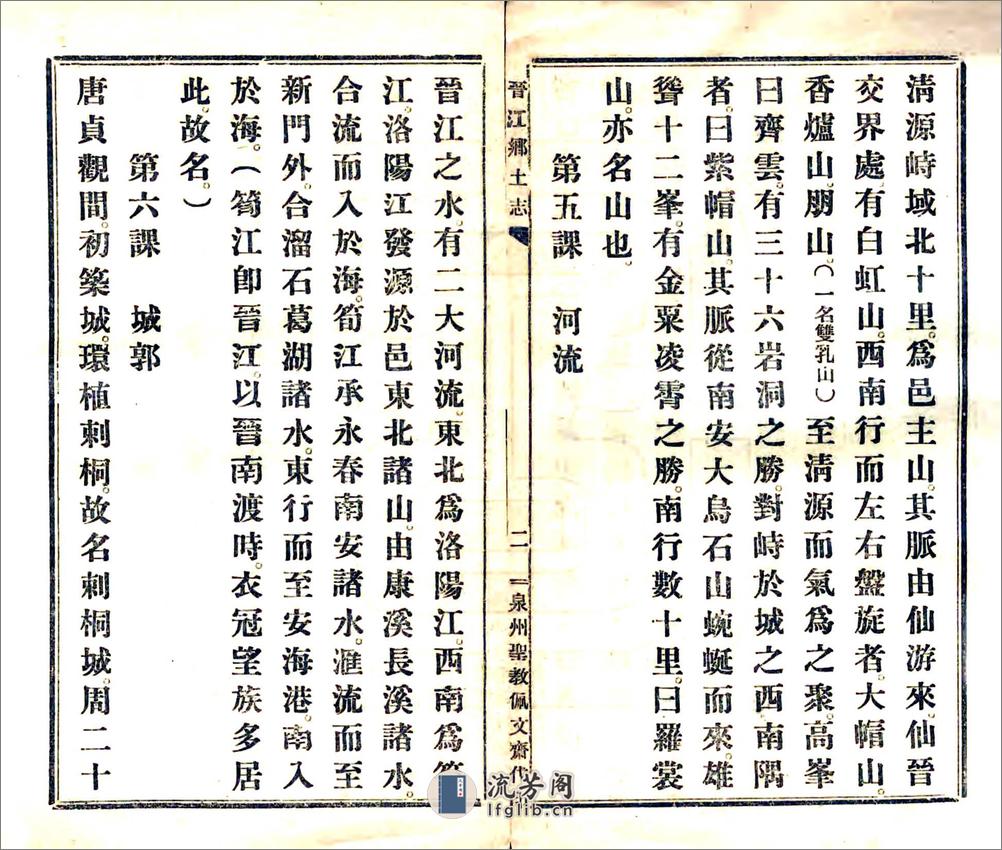 清源峙域北十里。爲邑主山。其脈由仙游來。仙晉
交界處。有白虹山。西南行而左右盤旋者。大帽山。
香爐山。朋山。(一名雙乳山)至清源而氣爲之聚。高峯
曰齊雲。有三十六岩洞之勝。對峙於城之西南隅
者。曰紫帽山。其脈從南安大烏石山蜿蜒而來。雄
聳十二峯。有金粟凌霄之勝。南行數十里。曰羅裳
山。亦名山也。
第五課 河流
晉江鄉土志
二
泉州聖教佩文齋代
晉江之水。有二大河流。東北爲洛陽江。西南爲筍
江。洛陽江發源於邑東北諸山。由康溪長溪諸水。
合流而入於海。筍江承永春南安諸水。滙流而至
新門外。合溜石葛湖諸水。東行而至安海港。南入
於海。(筍江即晉江。以晉南渡時。衣冠望族多居
此。故名。)
第六課 城郭
唐貞觀間。初築城。環植刺桐。故名刺桐城。周二十
流芳阁
lfglib.cn